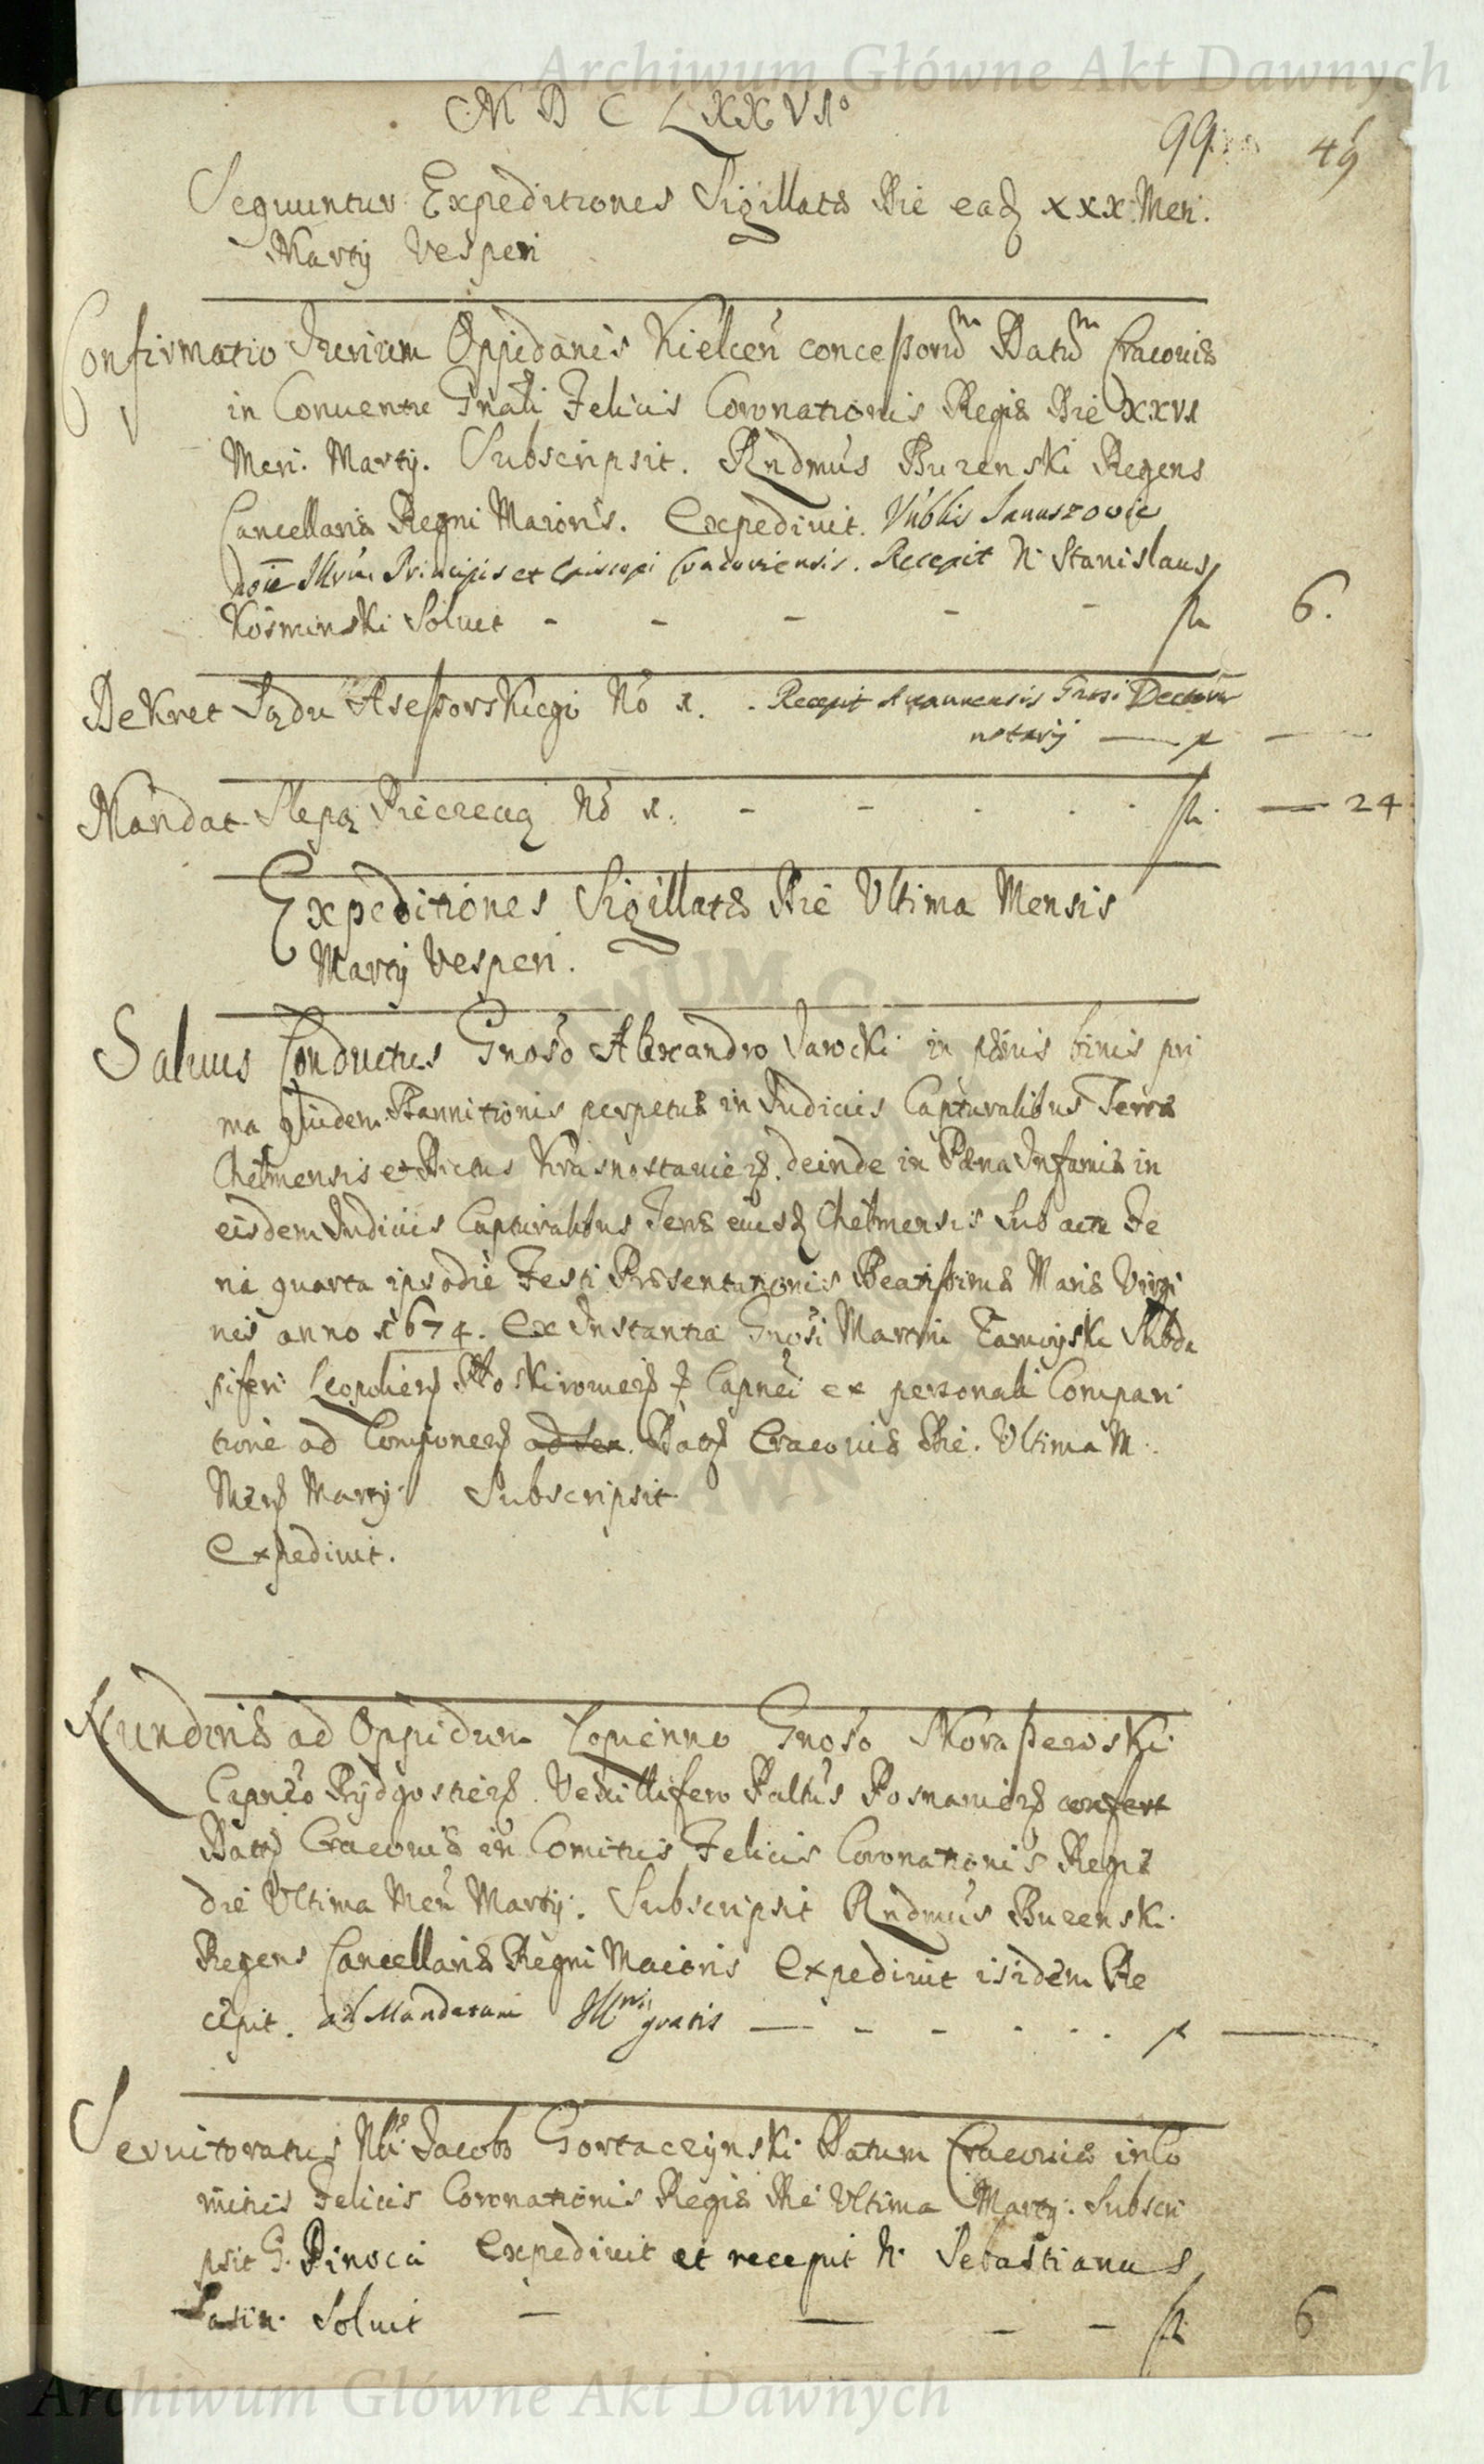 Archiwum Główne Akt Dawnych
M D C LXXVI°
99 49
Sequuntur Expeditiones Sigillatæ Die eaq XXX Men:
Martij Vesperi
Confirmatio Jurium Oppidanis Kielcen̄ concessoru͞m Datu͞m Cracoviæ
in Conventu Gn̄ali Felicis Coronationis Regiæ Die XXVI
Men: Martij. Subscripsit. Rndmus Buzenski Regens
Cancellariæ Regni Maioris. Expedivit. Nobblis Januszovic
noīe Illr̄mi Principis et Episcopi Cracoviensis. Recepit N. Stanislaus
Kosminski Solvit - - - - - fl 6.
Dekret Sądu Assessorskiego No 1. Recepit
notarij — fl —
Mandat No 1. - - - - - fl. — 24
Expeditiones Sigillatæ Die Ultima Mensis
Martij Vesperi.
Salvus Conductus Gnoso Alexandro Sarocki in pænis binis pri
ma quidem Bannitionis perpetuæ in Judiciis Capturalibus Terræ
Chelmensis et Dictus Krasnostavien. deinde in Pæna Infamiæ in
eisdem Judiciis Capturalibus Terræ eiusd Chelmensis Sub actu Fe
ria quarta ipso die Festi Præsentationis Beatissimæ Mariæ Virgi
nis anno 1674. Ex Instantia Gnosi Martini Zamoyski Subda
piferi Leopolien Capnei ex personali Compari
tione ad Componen ad sen. Dat Cracoviæ Die. Ultima M.
Mens Martij Subscripsit
Expedivit.
Nundinæ ad Oppidum Lopienno Gnoso Skoraszewski
Capneo Bydgostien. Vexillifero Paltus Posnanien confert
Datt Cracoviæ in Comitiis Felicis Coronationis Regiæ
die Ultima Men Martij. Subscripsit Rndmus Buzenski
Regens Cancellariæ Regni Maioris Expedivit isidem Re
cepit. ad Mandatum Illmi gratis — - - - - - fl —
Servitoratus Nbli Jacobo Gortaczynski Datum Cracoviæ in Co
mitiis Felicis Coronationis Regiæ Die Ultima Martij. Subscri
psit G. Pinocci Expedivit et recepit N. Sebastianus
Solvit - — - - fl 6
Archiwum Główne Akt Dawnych